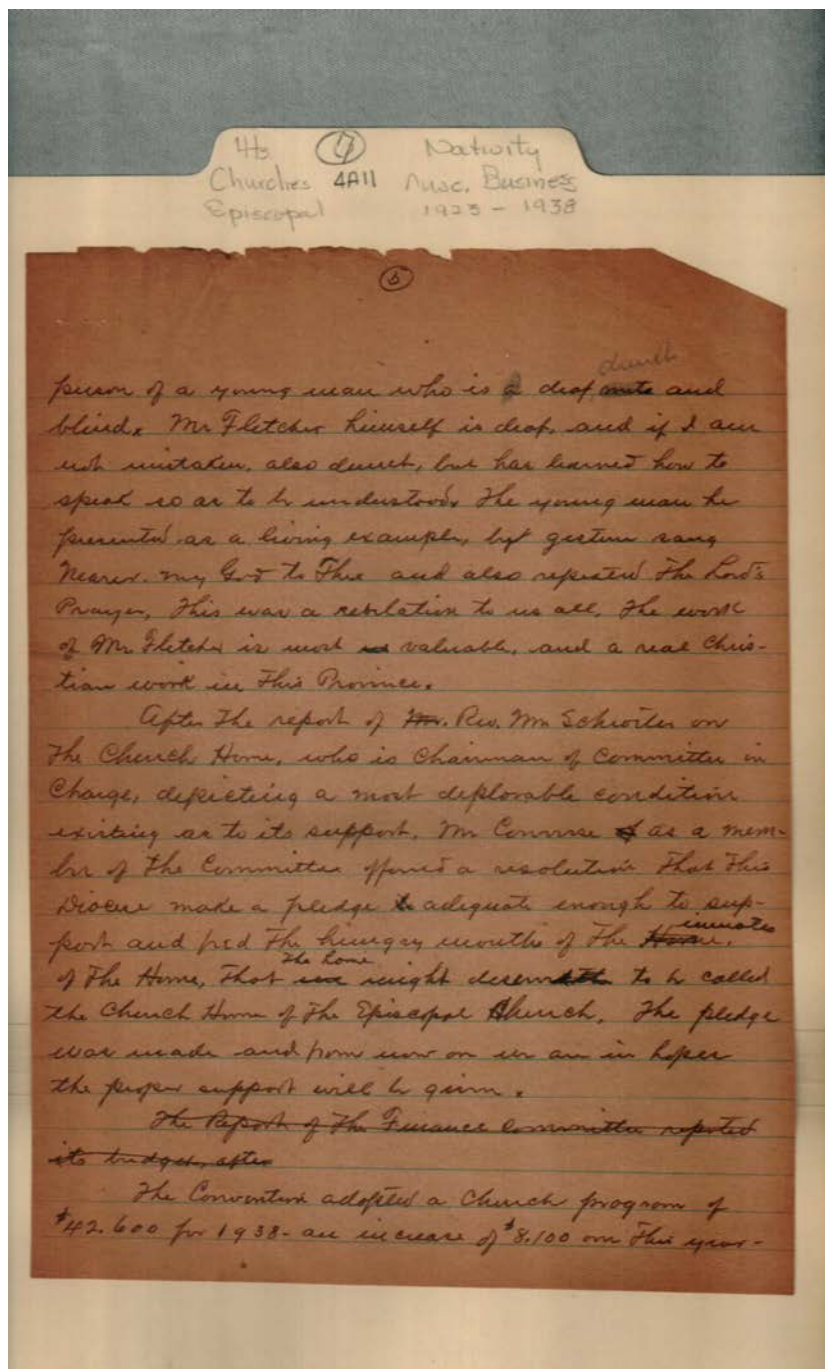 Hts. 7 Nativity
Churches 4A11 Misc. Business
Episcopal 1923 - 1938
5
dumb
person of a young man who is a deaf mute and
blind. Mr Fletcher himself is deaf, and if I am
not mistaken, also dumb, but has learned how to
speak so as to be understood. The young man he
presented as a living example, by gesture sang
Nearer my God to Thee and also repeated The Lord's
Prayer. This was a revelation to us all. The work
of Mr Fletcher is most valuable, and a real Chris-
tian work in This Province.
After The report of Mr. Rev. Mr on
The Church Home, who is Chairman of Committee in
Charge, depicting a most deplorable condition
existing as to its support, Mr Converse as a mem-
ber of The Committee offered a resolution That This
Diocese make a pledge adequate enough to sup-
port and feed The hungry mouths of The Home. inmates
of The Home, That The home might deserve to be called
the Church Home of The Episcopal Church. The pledge
was made and from now on we are in hopes
the proper support will be given.
The Report of The Finance Committee reported
its budget, after
The Convention adopted a Church program of
$42.600 for 1938 - an increase of $8.100 over This year -